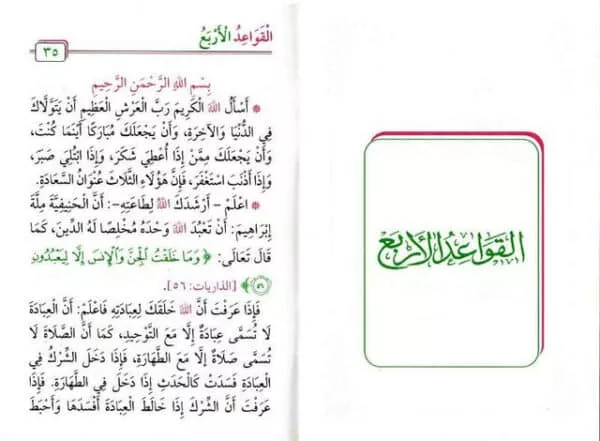 القواعد الأربع
الْقَوَاعِدُ الْأَرْبَعُ
٣٥
بِسْمِ اللَّهِ الرَّحْمَنِ الرَّحِيمِ
* أَسْأَلُ اللَّهَ الْكَرِيمَ رَبَّ الْعَرْشِ الْعَظِيمِ أَنْ يَتَوَلَّاكَ
فِي الدُّنْيَا وَالْآخِرَةِ، وَأَنْ يَجْعَلَكَ مُبَارَكًا أَيْنَمَا كُنْتَ،
وَأَنْ يَجْعَلَكَ مِمَّنْ إِذَا أُعْطِيَ شَكَرَ، وَإِذَا ابْتُلِيَ صَبَرَ،
وَإِذَا أَذْنَبَ اسْتَغْفَرَ، فَإِنَّ هَؤُلَاءِ الثَّلَاثَ عُنْوَانُ السَّعَادَةِ.
* اعْلَمْ – أَرْشَدَكَ اللَّهُ لِطَاعَتِهِ–: أَنَّ الْحَنِيفِيَّةَ مِلَّةَ
إِبْرَاهِيمَ: أَنْ تَعْبُدَ اللَّهَ وَحْدَهُ مُخْلِصًا لَهُ الدِّينَ، كَمَا
قَالَ تَعَالَى: ﴿وَمَا خَلَقْتُ الْجِنَّ وَالْإِنسَ إِلَّا لِيَعْبُدُونِ
٥٦﴾ [الذاريات: ٥٦].
فَإِذَا عَرَفْتَ أَنَّ اللَّهَ خَلَقَكَ لِعِبَادَتِهِ فَاعْلَمْ: أَنَّ الْعِبَادَةَ
لَا تُسَمَّى عِبَادَةً إِلَّا مَعَ التَّوْحِيدِ، كَمَا أَنَّ الصَّلَاةَ لَا
تُسَمَّى صَلَاةً إِلَّا مَعَ الطَّهَارَةِ، فَإِذَا دَخَلَ الشِّرْكُ فِي
الْعِبَادَةِ فَسَدَتْ كَالْحَدَثِ إِذَا دَخَلَ فِي الطَّهَارَةِ. فَإِذَا
عَرَفْتَ أَنَّ الشِّرْكَ إِذَا خَالَطَ الْعِبَادَةَ أَفْسَدَهَا وَأَحْبَطَ